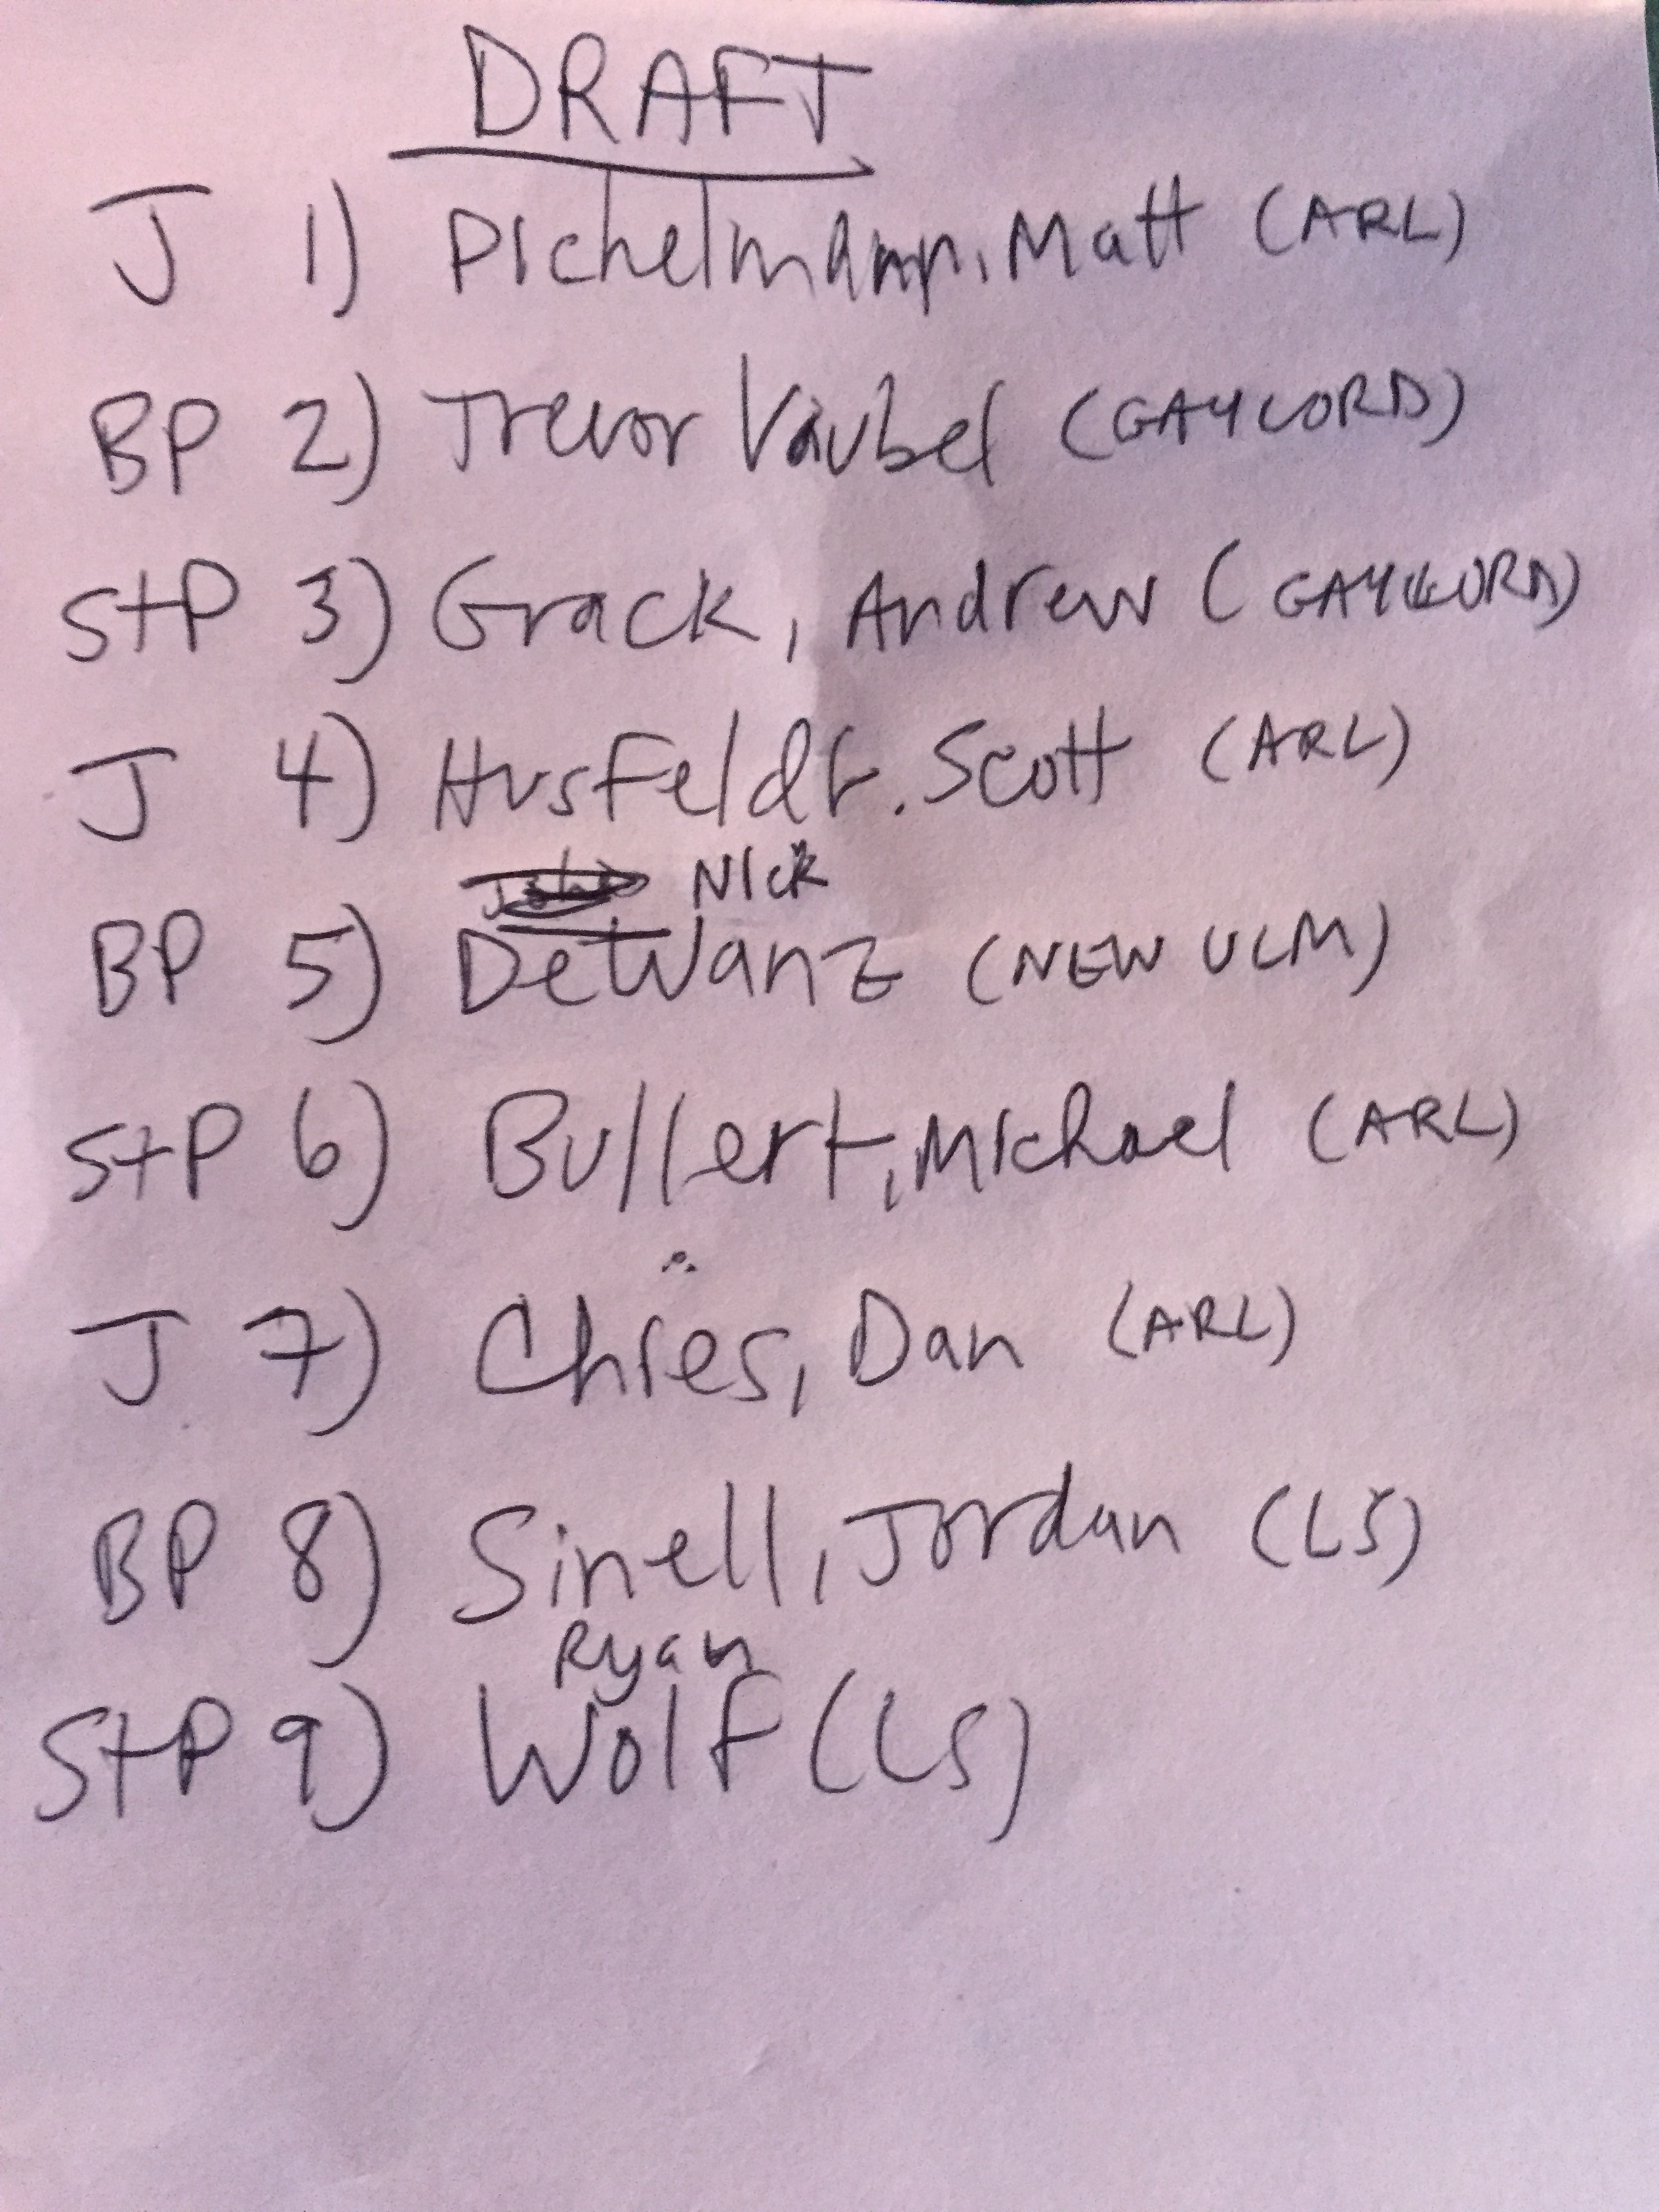 DRAFT
J 1) Pichelmann, Matt (ARL)
BP 2) Trevor Vaubel (GAYLORD)
StP 3) Grack, Andrew (GAYLORD)
J 4) Husfeldt. Scott (ARL)
Nick
BP 5) DeWanz (NEW ULM)
StP 6) Bullert, Michael (ARL)
J 7) Chies, Dan (ARL)
BP 8) Sinell, Jordan (LS)
Ryan
StP 9) Wolf (LS)